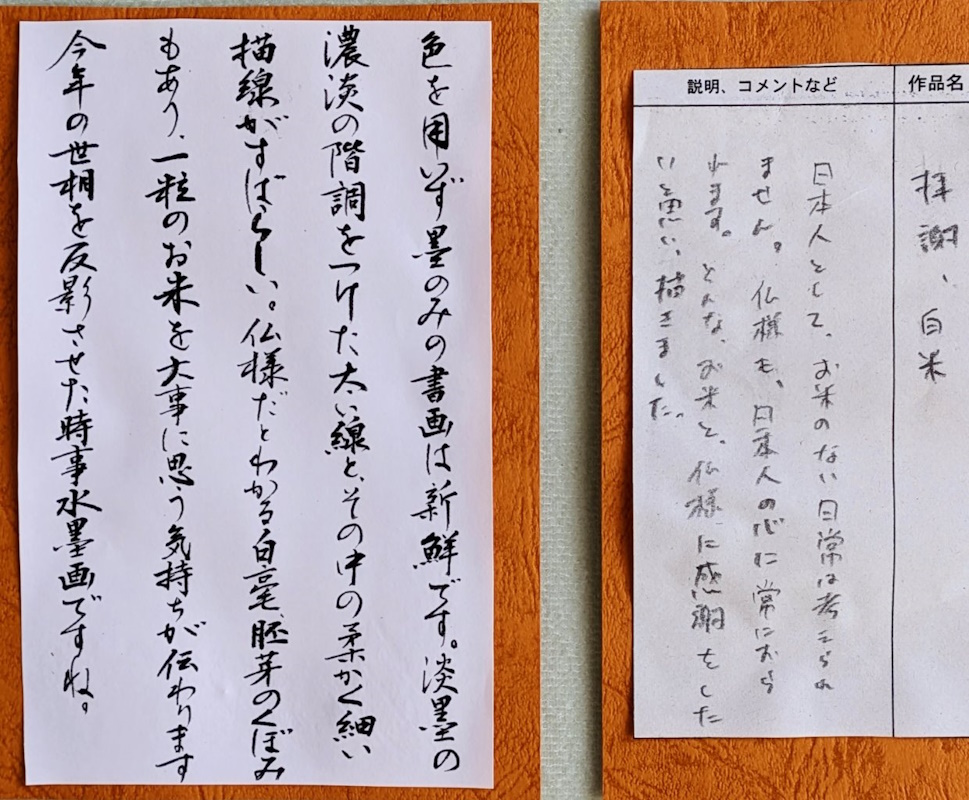 作品名
拝謝、白米
説明、コメントなど
日本人として、お米のない日常は考えられ
ません。仏様も、日本人の心に常におら
れます。そんな、お米と、仏様に感謝をした
いと思い、描きました。
色を用いず墨のみの書画は新鮮です。淡墨の
濃淡の階調をつけた太い線と、その中の柔かく細い
描線がすばらしい。仏様だとわかる白毫、胚芽のくぼみ
もあり、一粒のお米を大事に思う気持ちが伝わります
今年の世相を反影させた時事水墨画ですね。